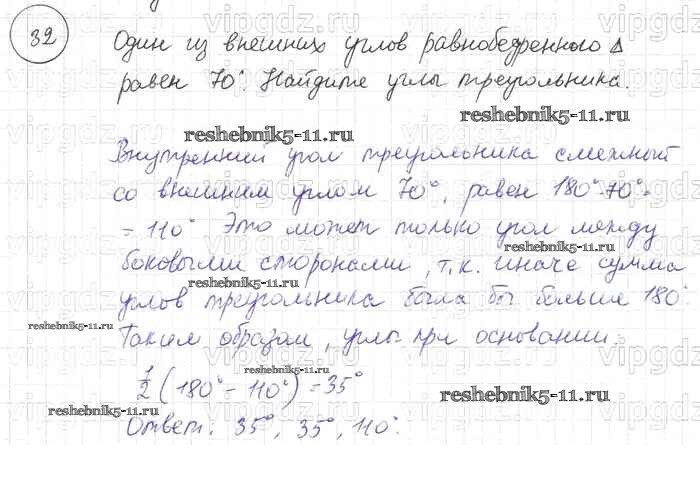 32
Один из внешних углов равнобедренного Δ
равен 70°. Найдите углы треугольника.
reshebnik5-11.ru
reshebnik5-11.ru
Внутренний угол треугольника смежный
со внешним углом 70°, равен 180°-70°=
= 110° Это может только угол между
reshebnik5-11.ru
боковыми сторонами, т.к. иначе сумма
reshebnik5-11.ru
углов треугольника была бы больше 180°.
reshebnik5-11.ru
Таким образом, углы при основании:
reshebnik5-11.ru
1/2 (180° - 110°) = 35°
reshebnik5-11.ru
reshebnik5-11.ru
Ответ: 35°, 35°, 110°.